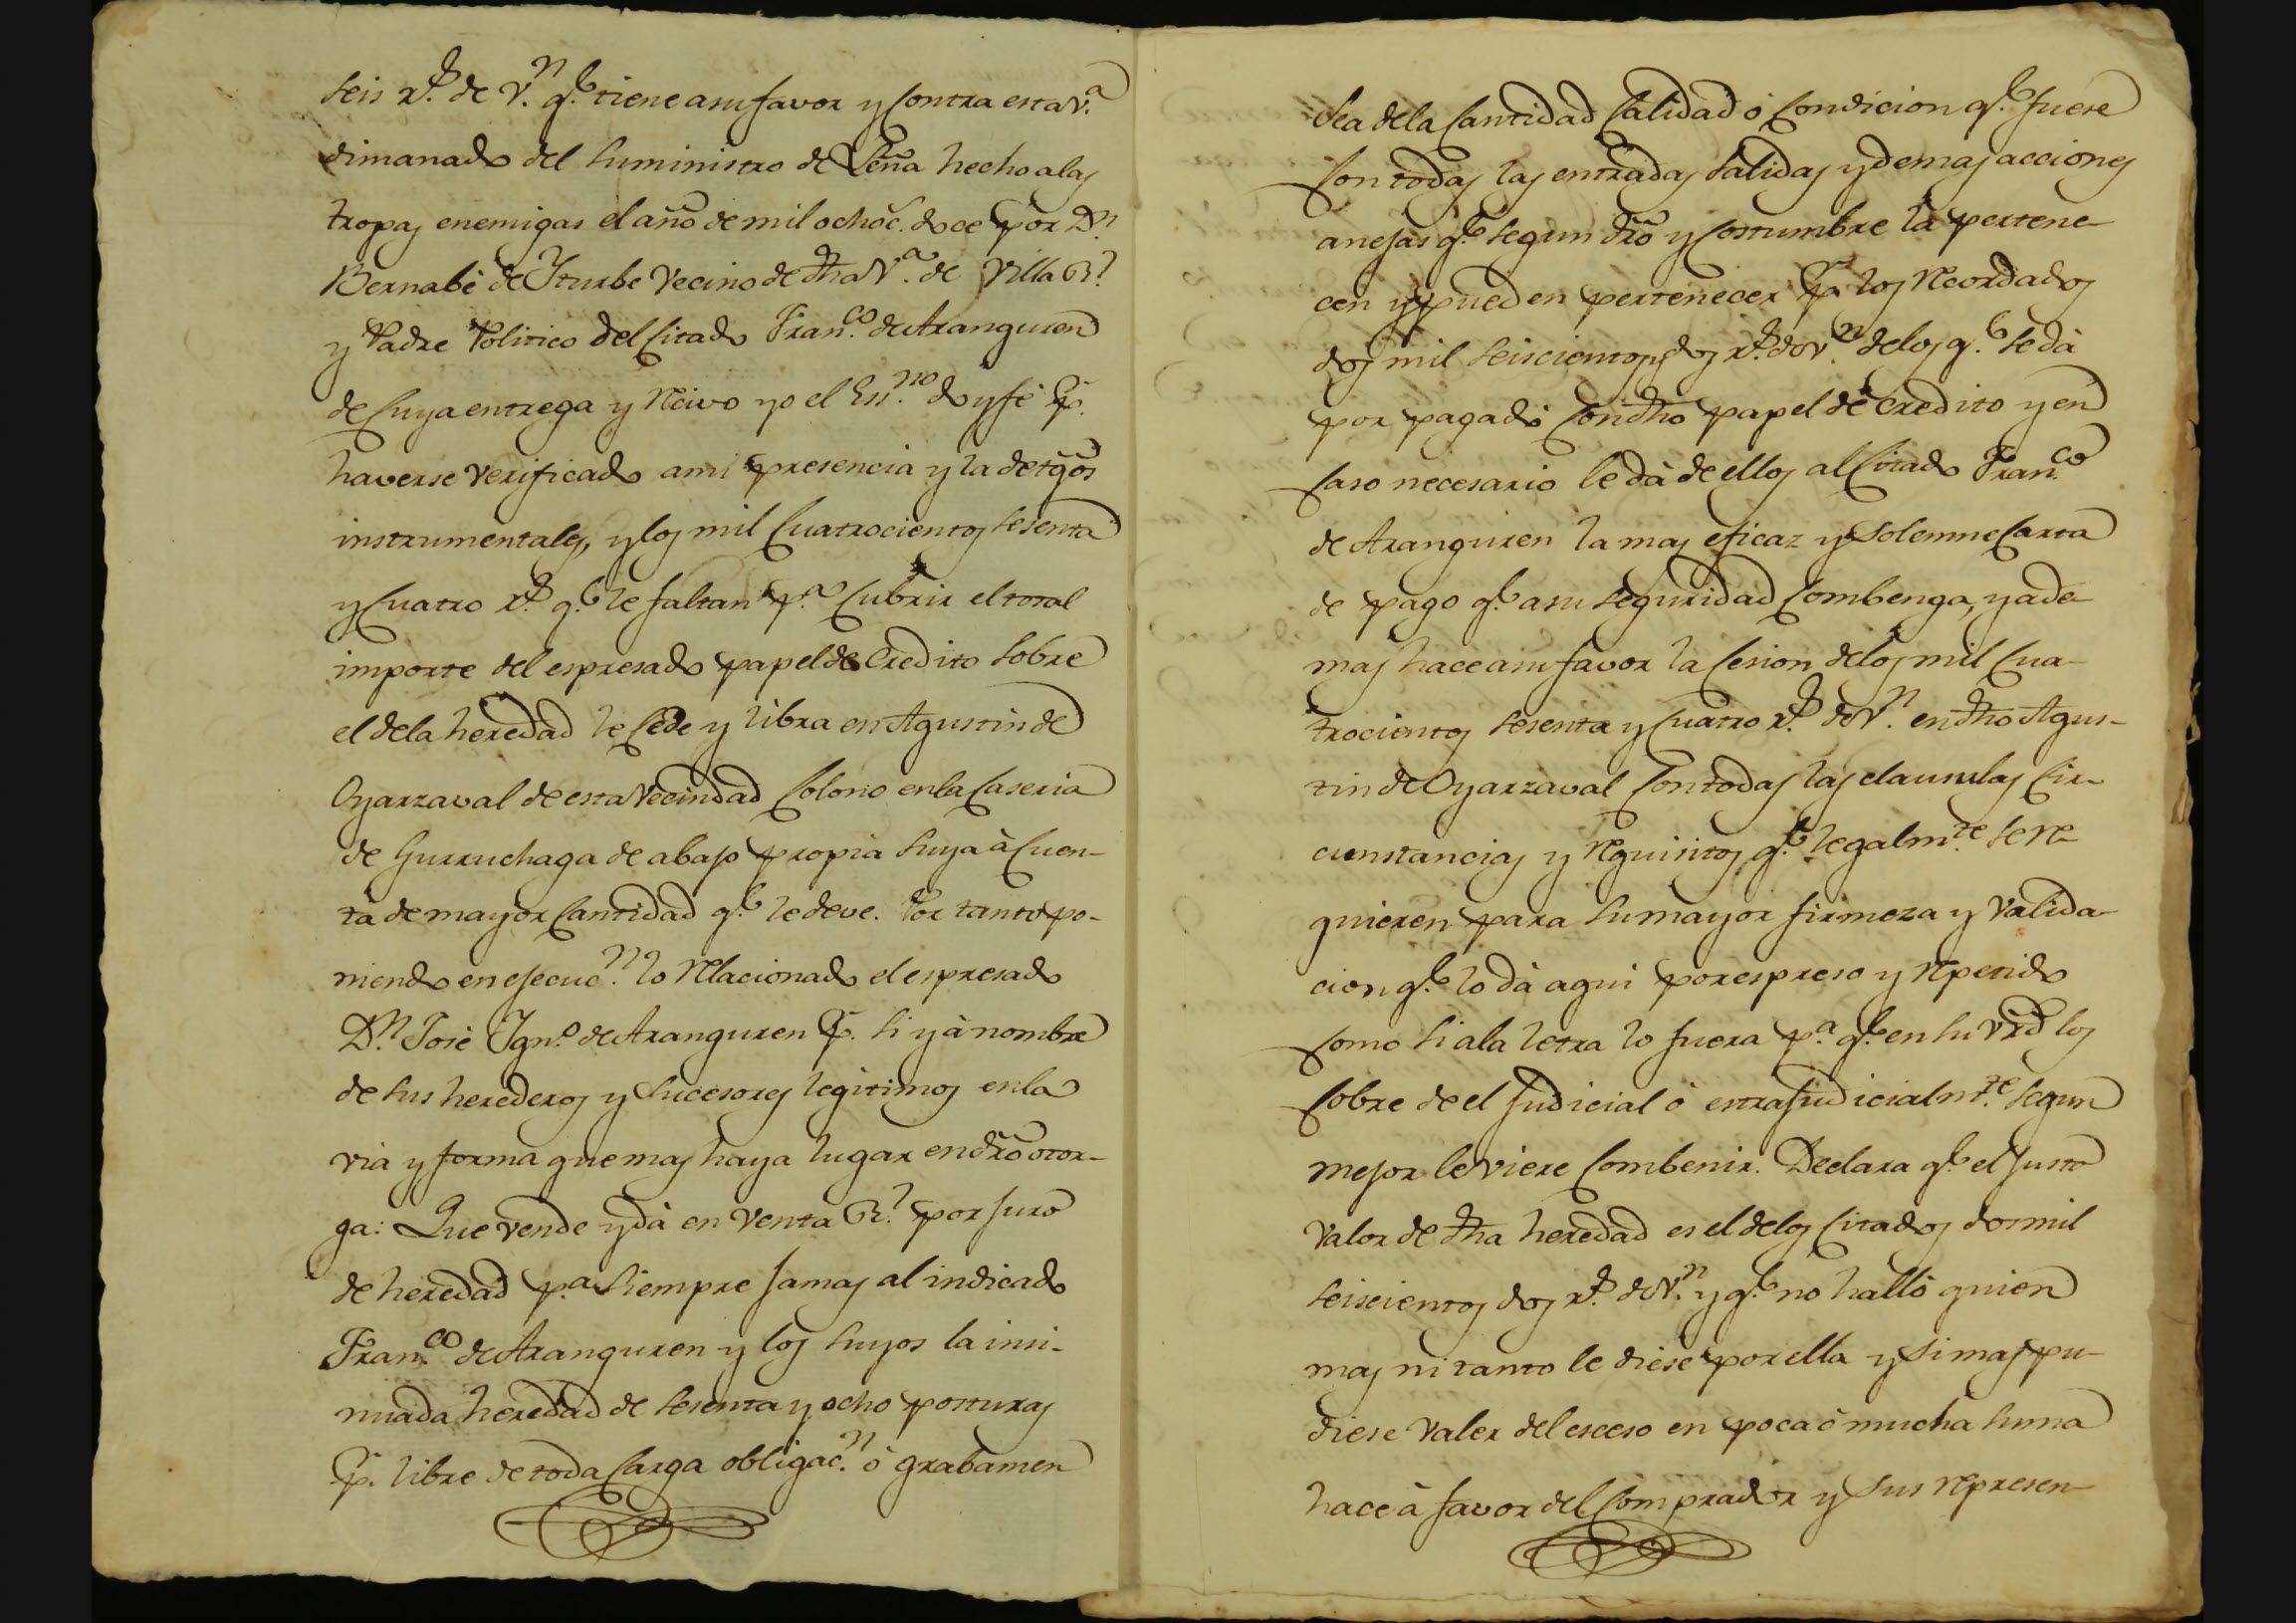 seis r.s de v.n q.e tiene a su favor y contra esta v.a
dimanado del suministro de Leña hecho a las
tropas enemigas el año de mil ochoc. doce por D.n
Bernabé de Yturbe vecino de dha v.a de Villa R.l
y Padre Politico del citado Fran.co de Aranguren
de cuya entrega y recivo yo el Ess.no doy fé p.r
haverse verificado a mi presencia y la de tgõs
instrumentales, y los mil cuatrocientos sesenta
y cuatro r.s q.e le faltan p.a cubrir el total
importe del espresado papel de credito sobre
el de la heredad le cede y libra en Agustin de
Oyarzaval de esta vecindad colono en la caseria
de Gurruchaga de abajo propia suya à cuen-
ta de mayor cantidad q.e le deve. Por tanto po-
niendo en ejecuc.n lo relacionado el espresado
D.n José Ygn.o de Aranguren p.r si y à nombre
de sus herederos y sucesores legitimos en la
via y forma que mas haya lugar en dro otor-
ga: Que vende y dà en venta R.l por juro
de heredad p.a siempre jamas al indicado
Fran.co de Aranguren y los suyos la insi-
nuada heredad de sesenta y ocho posturas
p.r libre de toda carga obligac.n ò grabamen
sea de la cantidad calidad ò condicion q.e fuere
con todas las entradas salidas y demas acciones
anejas q.e segun dro y costumbre la pertene-
cen y pueden pertenecer p.r los recordados
dos mil seiscientos dos r.s de v.n de los q.e se dà
por pagado con dho papel de credito y en
caso necesario le dà de ellos al citado Fran.co
de Aranguren la mas eficaz y solemne carta
de pago q.e a su seguridad combenga, y ade-
mas hace a su favor la cesion de los mil cua-
trocientos sesenta y cuatro r.s de v.n en dho Agus-
tin de Oyarzaval con todas las clausulas cir-
cunstancias y requisitos q.e legalm.te se re-
quieren para su mayor firmeza y valida-
cion q.e lo dà aqui por espreso y repetido
como si a la letra lo fuera p.a q.e en su vrd los
cobre de el judicial ò estrajudicialm.te segun
mejor le viere combenir. Declara q.e el justo
valor de dha heredad es el de los citados dos mil
seiscientos dos r.s de v.n y q.e no halló quien
mas ni tanto le diese por ella y si mas pu-
diese valer del esceso en poca ò mucha suma
hace à favor del comprador y sus represen-